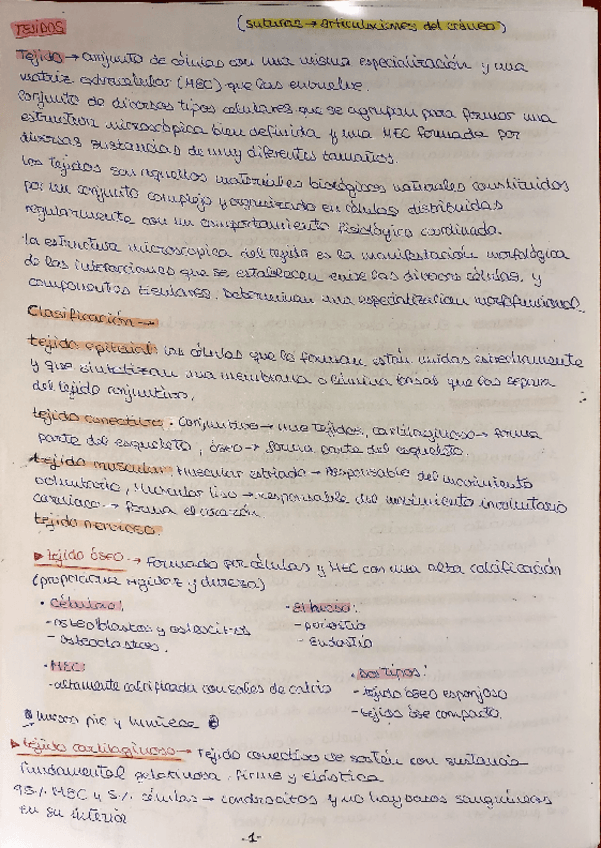 TEJIDOS (suturas → articulaciones del cráneo)
Tejido → conjunto de células con una misma especialización y una
matriz extracelular (MEC) que las envuelve.
Conjunto de diversos tipos celulares que se agrupan para formar una
estructura microscópica bien definida y una MEC formada por
diversas sustancias de muy diferentes tamaños.
Los tejidos son aquellos materiales biológicos naturales constituidos
por un conjunto complejo y organizado en células distribuidas
regularmente con un comportamiento fisiológico coordinado.
La estructura microscópica del tejido es la manifestación morfológica
de las interacciones que se establecen entre las diversas células y
componentes tisulares. Determinan una especialización morfofuncional.
Clasificación →
tejido epitelial: las células que lo forman están unidas estrechamente
y que sintetizan una membrana o lámina basal que las separa
del tejido conjuntivo.
tejido conectivo. Conjuntivo → une tejidos, cartilaginoso → forma
parte del esqueleto, óseo → forma parte del esqueleto.
tejido muscular. Muscular estriado → Responsable del movimiento
voluntario, Muscular liso → responsable del movimiento involuntario
cardiaco → forma el corazón
tejido nervioso.
▶ tejido óseo → Formado por células y MEC con una alta calcificación
(proporciona rigidez y dureza)
• Células: - El hueso:
- osteoblastos y osteocitos - periostio
- osteoclastos. - endostio
• MEC: • Dos tipos:
- altamente calcificada con sales de calcio - tejido óseo esponjoso
- tejido óse compacto.
huesos pie y muñeca
▶ tejido cartilaginoso → Tejido conectivo de sostén con sustancia
fundamental gelatinosa, firme y elástica
95% MEC y 5% células → condrocitos y no hay vasos sanguíneos
en su interior
-1-